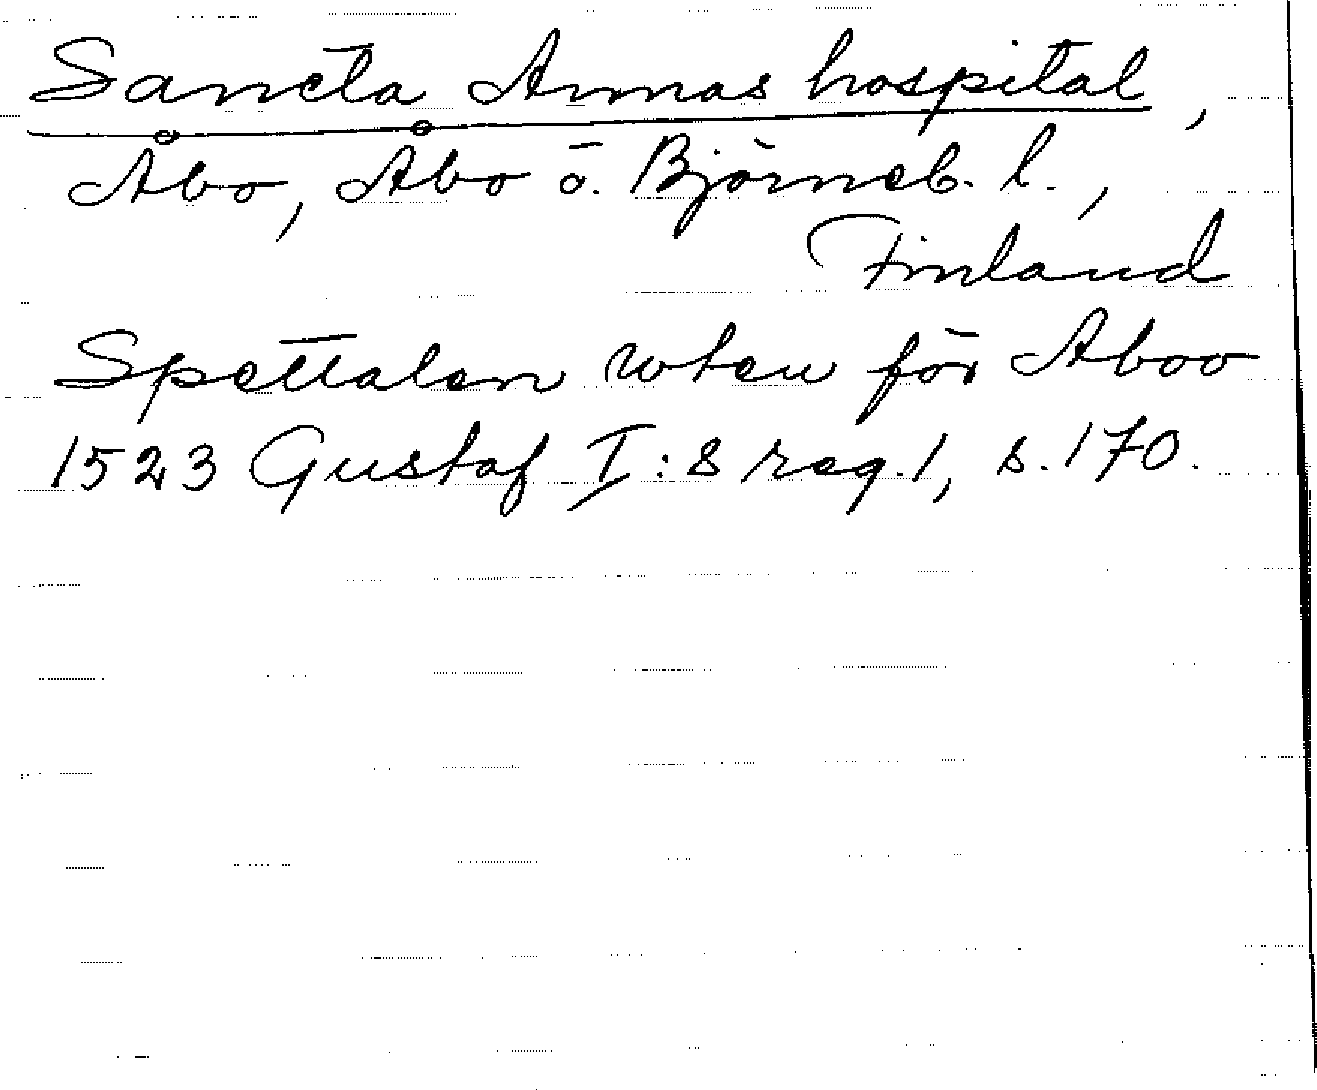 Sancta Annas hospital,
Åbo, Åbo ö. Björneb. l.,
Finland
Spettalen wten för Aboo
1523 Gustaf I:s reg. 1, s. 170.